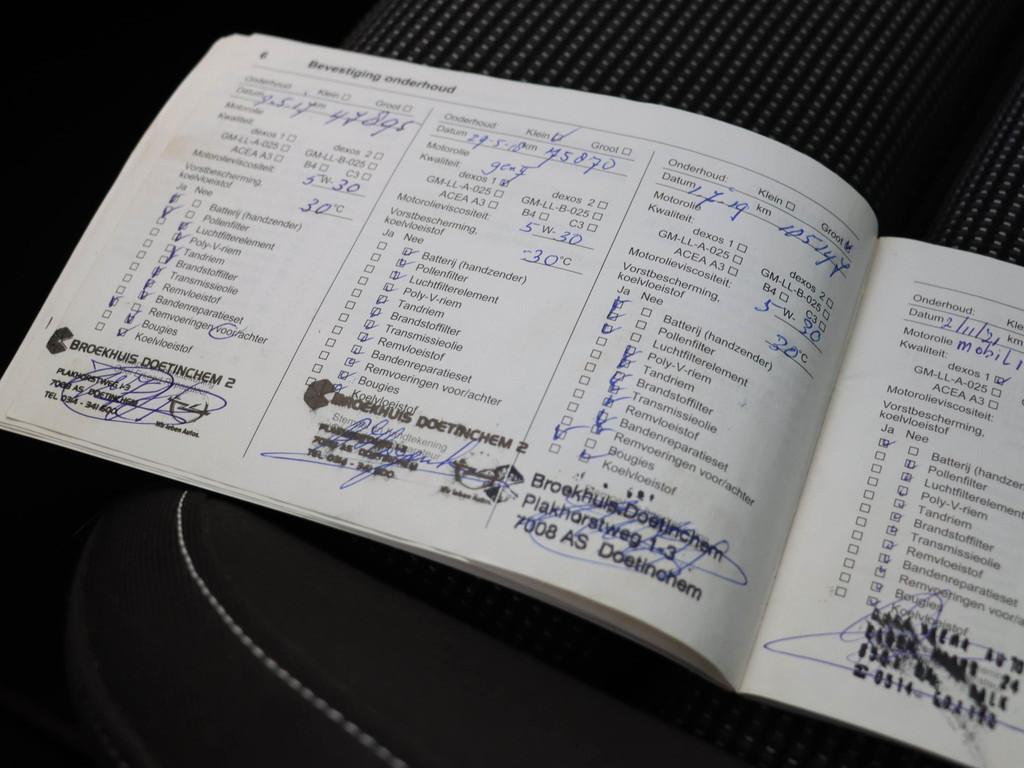 6
Bevestiging onderhoud
Onderhoud Klein Groot
Datum 9-5-17 km 47895
Motorolie
Kwaliteit: dexos 1 dexos 2
GM-LL-A-025 GM-LL-B-025
ACEA A3 B4 C3
Motorolieviscositeit: 5 W-30
Vorstbescherming,
koelvloeistof 30°C
Ja Nee
Batterij (handzender)
Pollenfilter
Luchtfilterelement
Poly-V-riem
Tandriem
Brandstoffilter
Transmissieolie
Remvloeistof
Bandenreparatieset
Remvoeringen voor/achter
Bougies
Koelvloeistof
BROEKHUIS DOETINCHEM 2
PLAKHORSTWEG 1-3
7008 AS DOETINCHEM
TEL 0314 - 341 600
Wir leben Autos.
Onderhoud Klein Groot
Datum 29-5-18 km 75870
Motorolie
Kwaliteit: dexos 1 dexos 2
GM-LL-A-025 GM-LL-B-025
ACEA A3 B4 C3
Motorolieviscositeit: 5 W-30
Vorstbescherming,
koelvloeistof -30°C
Ja Nee
Batterij (handzender)
Pollenfilter
Luchtfilterelement
Poly-V-riem
Brandstoffilter
Transmissieolie
Remvloeistof
Bandenreparatieset
Remvoeringen voor/achter
Bougies
Koelvloeistof
BROEKHUIS DOETINCHEM 2
Wir leben Autos.
Onderhoud: Klein Groot
Datum 1-7-19 km 105447
Motorolie
Kwaliteit: dexos 1 dexos 2
GM-LL-A-025 GM-LL-B-025
ACEA A3 B4 C3
Motorolieviscositeit: 5 W-30
Vorstbescherming,
koelvloeistof 30°C
Ja Nee
Batterij (handzender)
Pollenfilter
Luchtfilterelement
Poly-V-riem
Tandriem
Brandstoffilter
Transmissieolie
Remvloeistof
Bandenreparatieset
Remvoeringen voor/achter
Bougies
Koelvloeistof
Broekhuis Doetinchem
Plakhorstweg 1-3
7008 AS Doetinchem
Onderhoud:
Datum 2/11/21 km
Motorolie
Kwaliteit: dexos 1
GM-LL-A-025
ACEA A3
Motorolieviscositeit:
Vorstbescherming,
koelvloeistof
Ja Nee
Batterij
Pollenfilter
Luchtfilterelement
Poly-V-riem
Tandriem
Brandstoffilter
Transmissieolie
Remvloeistof
Bandenreparatieset
Remvoeringen
Bougies
Koelvloeistof